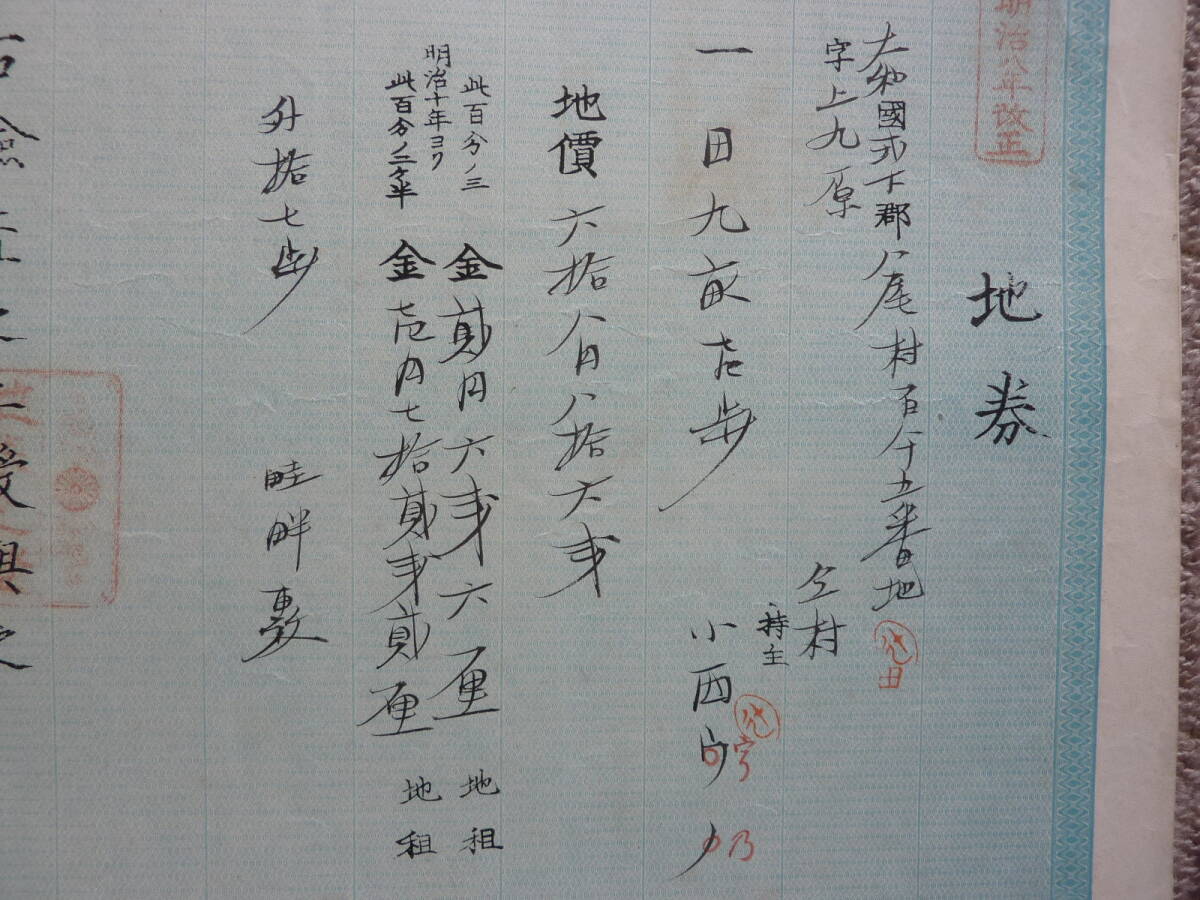 明治八年改正
地券
大和國式下郡八尾村百八十五番地
字上九原
仝村
持主
一 田九畝壱歩 小西
地價 六拾八円八拾六銭
此百分ノ三 金貳円六銭六厘 地租
明治十年ヨリ
此百分ノ二ヶ半 金壱円七拾貳銭貳厘 地租
外拾七歩 畦畔敷
授與之